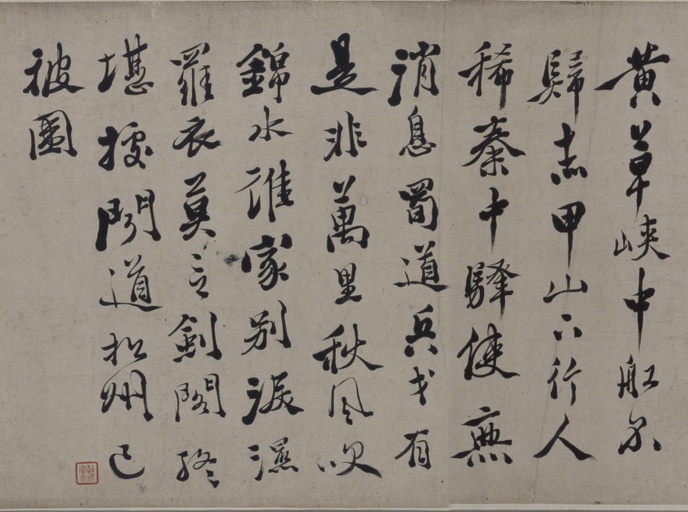 黃草峽中船不
歸赤甲山下行人
稀秦中驛使無
消息蜀道兵戈有
是非萬里秋風吹
錦水誰家別淚濕
羅衣莫言劍閣終
堪據聞道松州已
被圍